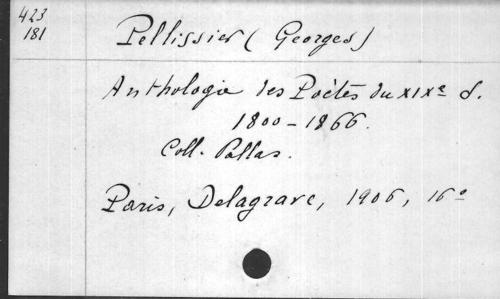 423
181
Pellissier (Georges)
Anthologie des Poètes du XIXe S.
1800-1866.
Coll. Pallas.
Paris, Delagrave, 1906, 16o